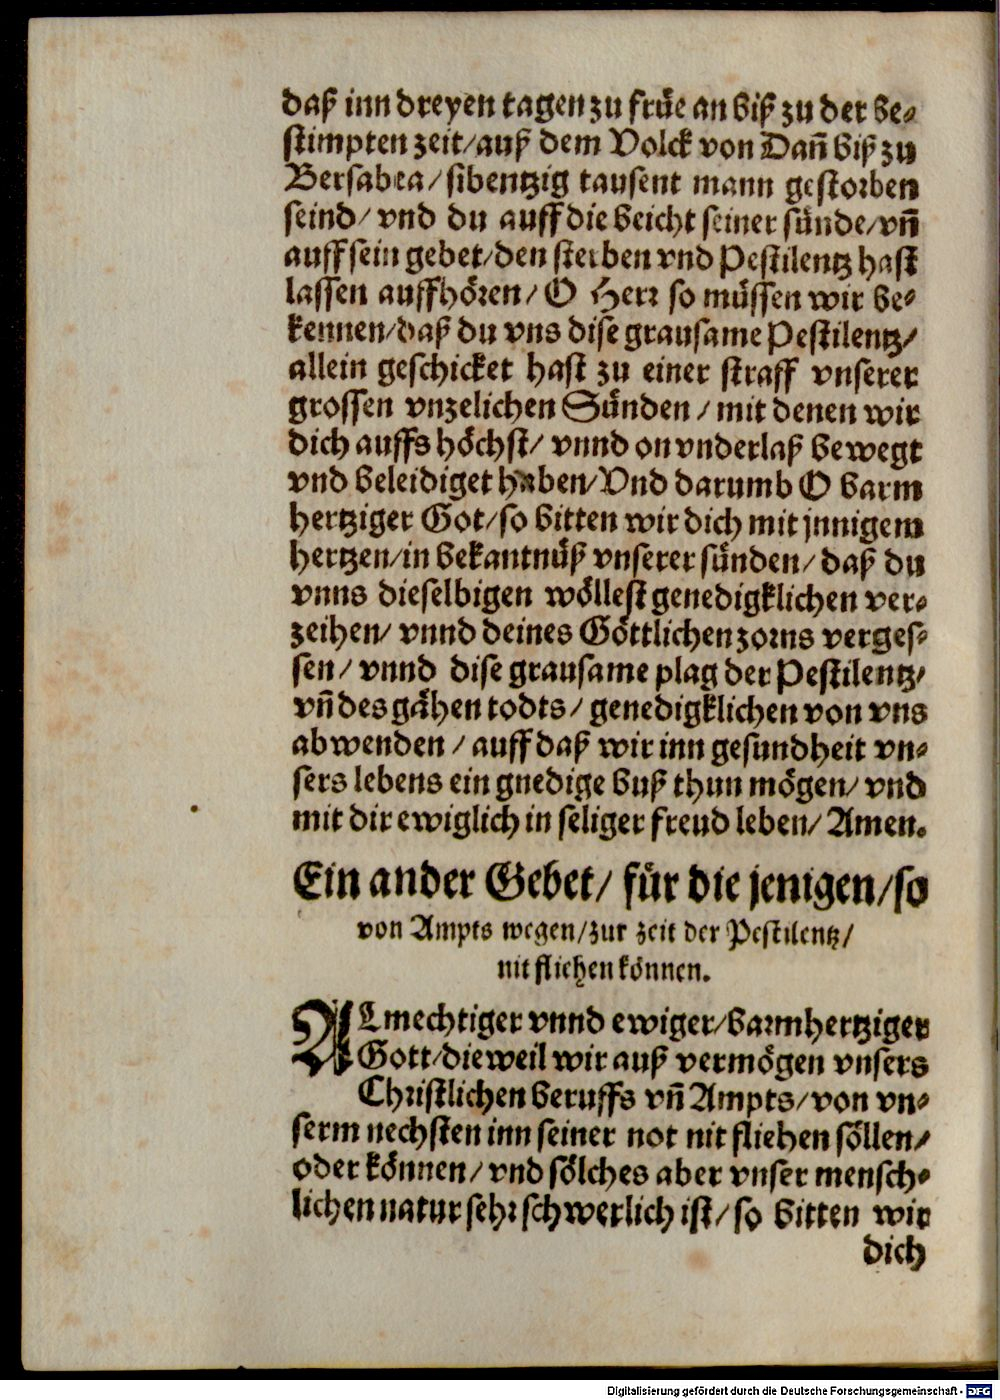 daß inn dreyen tagen zu früe an biß zu der be⸗
stimpten zeit/ auß dem Volck von Dañ biß zu
Bersabea/ sibentzig tausent mann gestorben
seind/ vnd du auff die beicht seiner sünde/ vñ
auff sein gebet/ den sterben vnd Pestilentz hast
lassen auffhören/ O Herr so müssen wir be⸗
kennen/ daß du vns dise grausame Pestilentz/
allein geschicket hast zu einer straff vnserer
grossen vnzelichen Sünden / mit denen wir
dich auffs höchst/ vnnd on vnderlaß bewegt
vnd beleidiget haben/ Vnd darumb O barm
hertziger Got/ so bitten wir dich mit jnnigem
hertzen/ in bekantnüß vnserer sünden/ daß du
vnns dieselbigen wöllest genedigklichen ver⸗
zeihen/ vnnd deines Göttlichen zorns verges⸗
sen/ vnnd dise grausame plag der Pestilentz/
vñ des gähen todts/ genedigklichen von vns
abwenden / auff daß wir inn gesundheit vn⸗
sers lebens ein gnedige buß thun mögen/ vnd
mit dir ewiglich in seliger freud leben/ Amen.
Ein ander Gebet/ für die jenigen/ so
von Ampts wegen/ zur zeit der Pestilentz/
nit fliehen können.
ALmechtiger vnnd ewiger/ barmhertziger
Gott/ dieweil wir auß vermögen vnsers
Christlichen beruffs vñ Ampts/ von vn⸗
serm nechsten inn seiner not nit fliehen söllen/
oder können/ vnd sölches aber vnser mensch⸗
lichen natur sehr schwerlich ist/ so bitten wir
dich
Digitalisierung gefördert durch die Deutsche Forschungsgemeinschaft - DFG